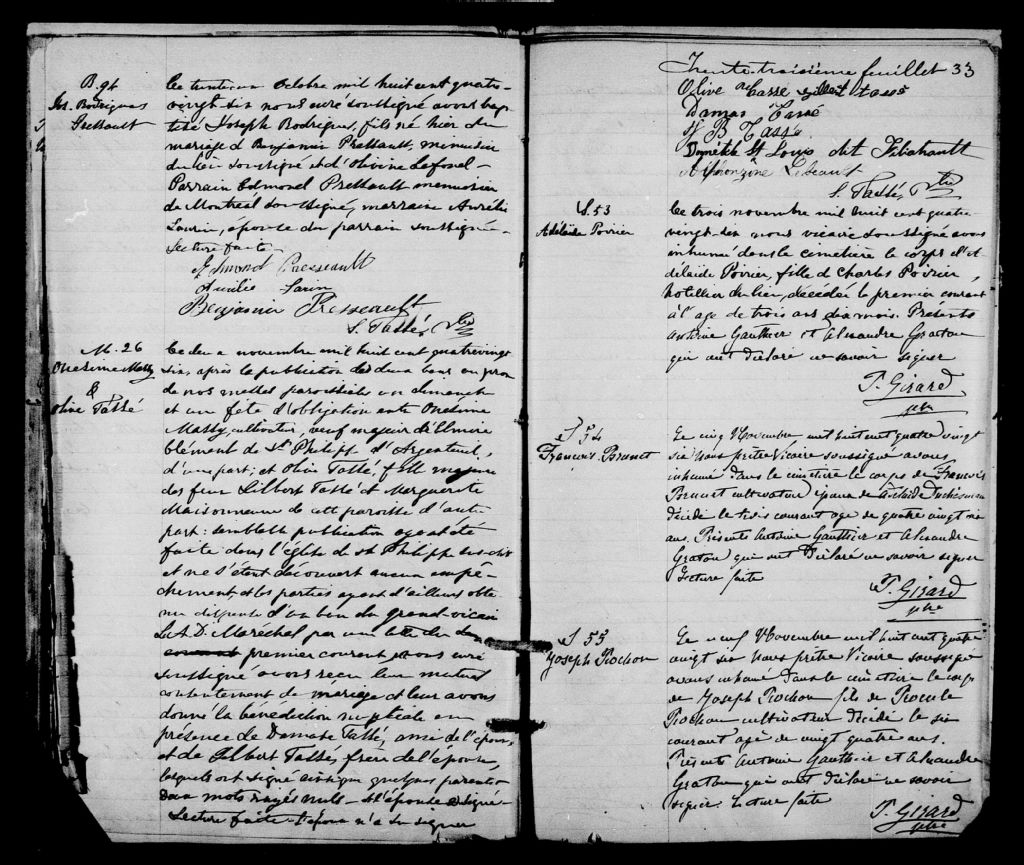 B. 94
Jos. Rodrigues
Preseault
Le trente-un Octobre mil huit cent quatre-
vingt-six nous curé soussigné avons bap-
tisé Joseph Rodrigues, fils né hier du
mariage de Benjamin Presseault, menuisier
du lieu soussigné et d'Olivine
Parrain Edmond Presseault menuisier
de Montreal soussigné, marraine Aurélie
Laurin, épouse du parrain soussignée -
Lecture faite -
Edmond Presseault
Aurélie Larin
Benjamin Presseault
S. Tassé, Ptre
M. 26
Onesime Massy
&
Olive Tassé
Le deux novembre mil huit cent quatrevingt
six, après la publication de deux bans au prône
de nos messes paroissiales un dimanche
et une fête d'obligation entre Onesime
Massy, cultivateur, veuf majeur d'Elmire
Clément de St Philippe d'Argenteuil,
d'une part; et Olive Tassé, fille majeure
des feux Gilbert Tassé et Marguerite
Maisonneuve de cette paroisse d'autre
part: semblable publication ayant été
faite dans l'église de St Philippe susdit
et ne s'étant découvert aucun empê-
chement et les parties ayant d'ailleurs obte-
nu dispense d'un ban du grand-vicaire
L. A. D. Maréchal par une lettre du
premier courant, nous curé
soussigné avons reçu leur mutuel
consentement de mariage et leur avons
donné la bénédiction nuptiale en
présence de Damase Tassé, ami de l'époux,
et de Gilbert Tassé, frère de l'épouse,
lesquels ont signé ainsi que quelques parents
Deux mots rayés nuls - et l'épouse a signé -
Lecture faite - L'époux n'a su signer
Trente-troisième feuillet 33
Olive Tassé Gilbert Tassé
Damas Tassé
B Tassé
St Louis dit
S. Tassé, Ptre
S. 53
Adélaïde Poirier
Le trois novembre mil huit cent quatre-
vingt-six nous vicaire soussigné avons
inhumé dans le cimetière le corps d'A-
délaïde Poirier, fille de Charles Poirier,
hotellier du lieu, décédée le premier courant
à l'age de trois ans dix mois. Présents
Antoine Gauthier et Alexandre Graton
qui ont déclaré ne savoir signer
T. Girard
ptre
S 54
François Brunet
Le cinq Novembre mil huit cent quatre vingt
six Nous prêtre Vicaire soussigné avons
inhumé dans le cimetière le corps de François
Brunet cultivateur époux de Adelaide Duchesneau
décédé le trois courant agé de quatre vingt six
ans. Présents Antoine Gauthier et Alexandre
Graton qui ont déclaré ne savoir signer
Lecture faite
T. Girard
ptre
S 55
Joseph Rochon
Le neuf Novembre mil huit cent quatre
vingt six Nous prêtre Vicaire soussigné
avons inhumé dans le cimetière le corps
de Joseph Rochon fils de
Rochon cultivateur décédé le six
courant agé de vingt quatre ans.
Présents Antoine Gauthier et Alexandre
Graton qui ont déclaré ne savoir
signer. Lecture faite
T. Girard
ptre